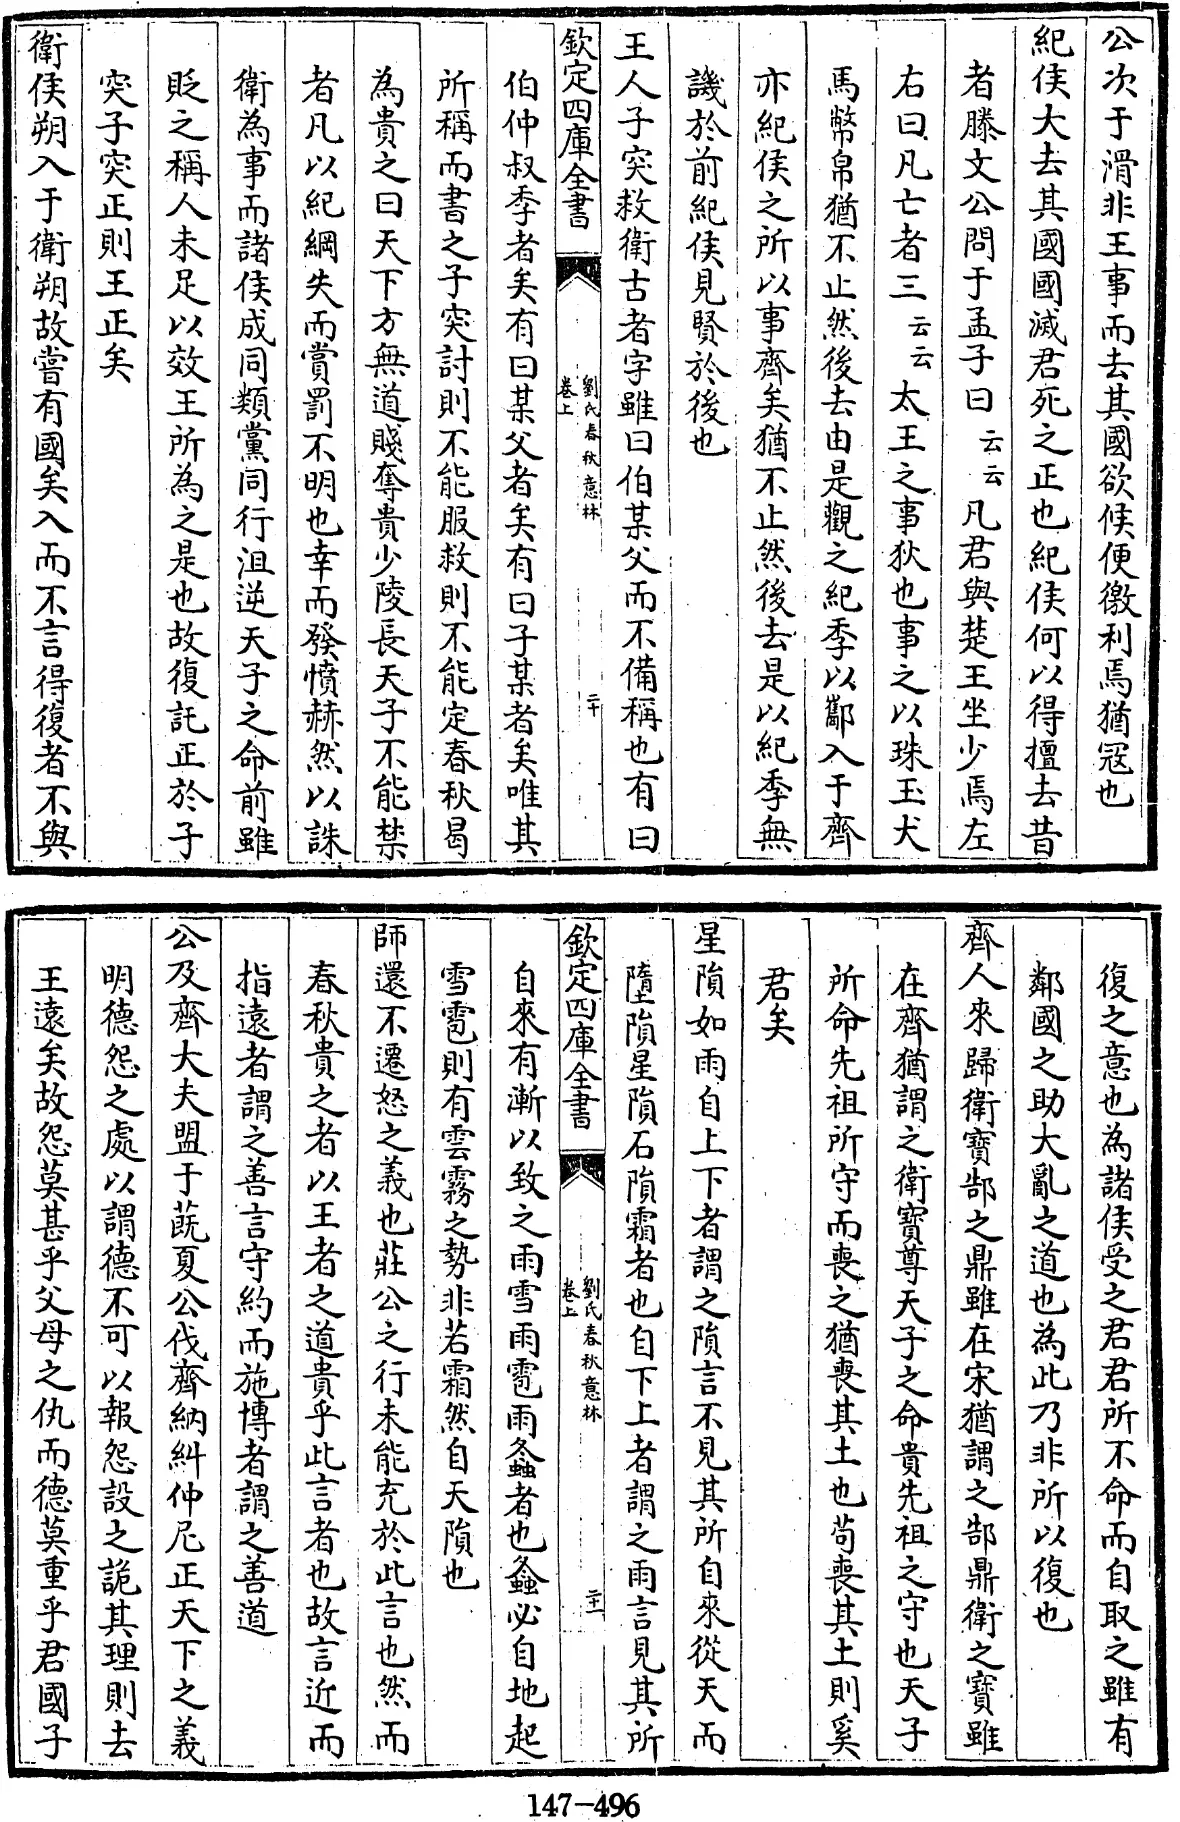 公次于滑非王事而去其國欲候便徼利焉猶冦也
紀侯大去其國國滅君死之正也紀侯何以得擅去昔
者滕文公問于孟子曰云云凡君與楚王坐少焉左
右曰凡亡者三云云太王之事狄也事之以珠玉犬
馬幣帛猶不止然後去由是觀之紀季以酅入于齊
亦紀侯之所以事齊矣猶不止然後去是以紀季無
譏於前紀侯見賢於後也
王人子突救衛古者字雖曰伯某父而不備稱也有曰
欽定四庫全書
劉氏春秋意林
卷上
二十
伯仲叔季者矣有曰某父者矣有曰子某者矣唯其
所稱而書之子突討則不能服救則不能定春秋曷
為貴之曰天下方無道賤奪貴少陵長天子不能禁
者凡以紀綱失而賞罰不明也幸而發憤赫然以誅
衛為事而諸侯成同類黨同行沮逆天子之命前雖
貶之稱人未足以效王所為之是也故復託正於子
突子突正則王正矣
衛侯朔入于衛朔故嘗有國矣入而不言得復者不與
復之意也為諸侯受之君君所不命而自取之雖有
鄰國之助大亂之道也為此乃非所以復也
齊人來歸衛寳郜之鼎雖在宋猶謂之郜鼎衛之寳雖
在齊猶謂之衛寳尊天子之命貴先祖之守也天子
所命先祖所守而喪之猶喪其土也苟喪其土則奚
君矣
星隕如雨自上下者謂之隕言不見其所自來從天而
墮隕星隕石隕霜者也自下上者謂之雨言見其所
欽定四庫全書
劉氏春秋意林
卷上
二十一
自來有漸以致之雨雪雨雹雨螽者也螽必自地起
雪雹則有雲霧之勢非若霜然自天隕也
師還不遷怒之義也莊公之行未能充於此言也然而
春秋貴之者以王者之道貴乎此言者也故言近而
指遠者謂之善言守約而施博者謂之善道
公及齊大夫盟于蔇夏公伐齊納糾仲尼正天下之義
明德怨之處以謂德不可以報怨設之詭其理則去
王遠矣故怨莫甚乎父母之仇而德莫重乎君國子
147-496